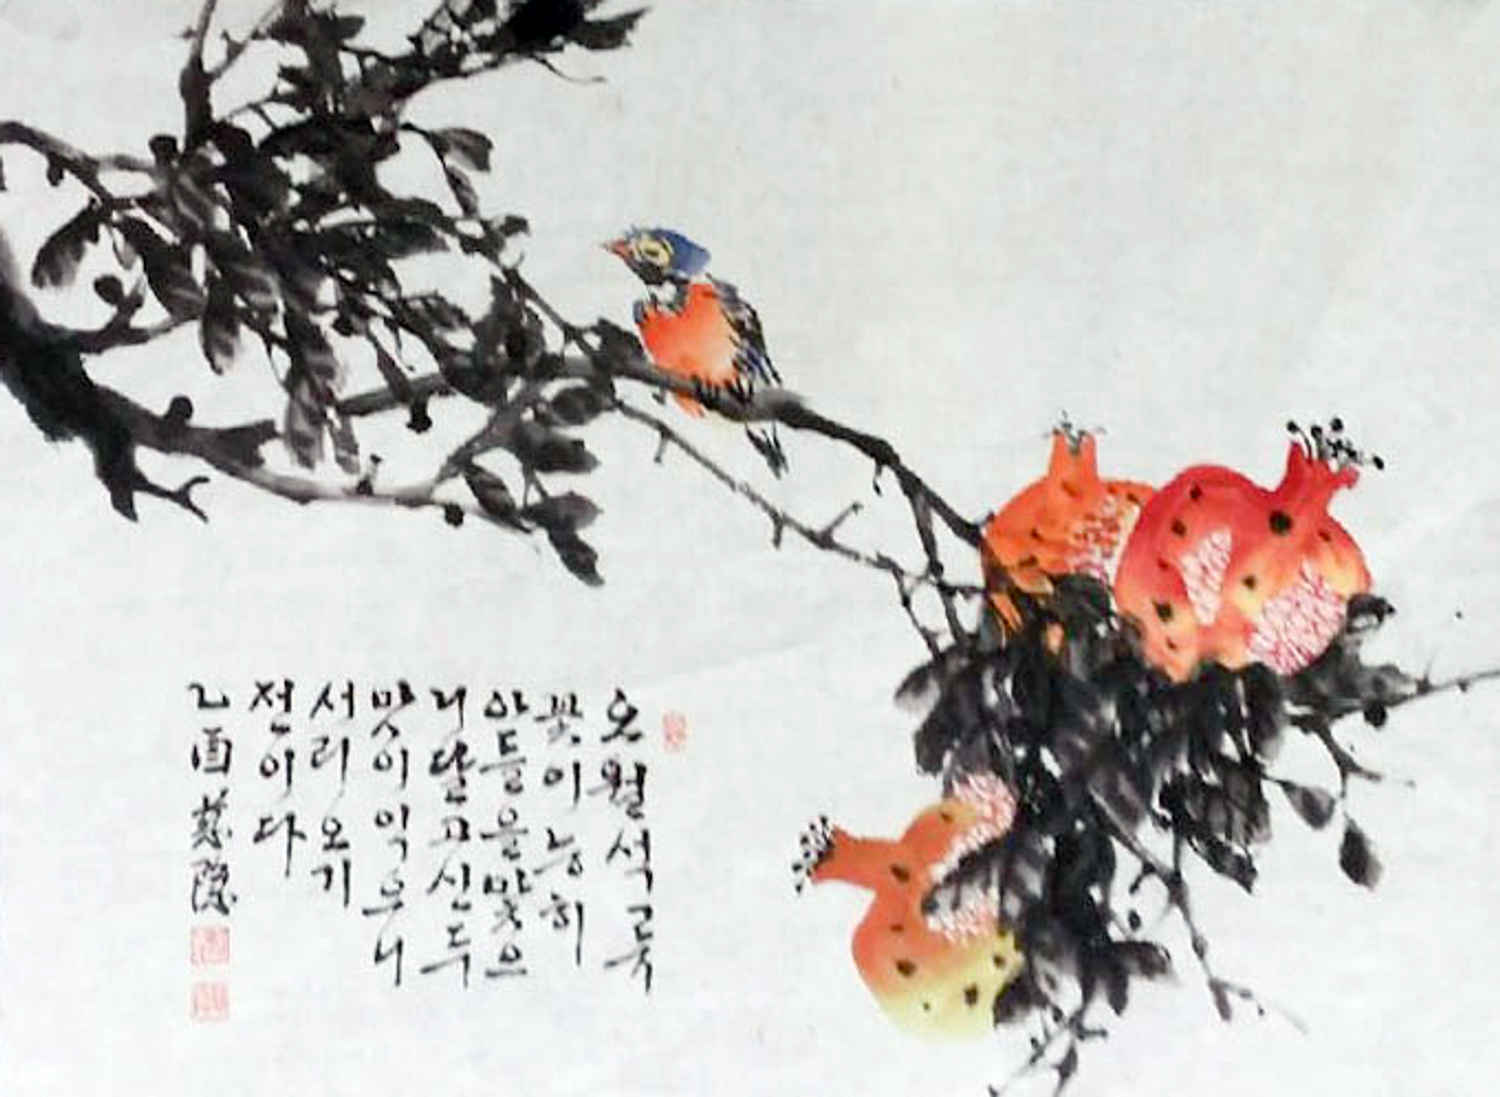 오월석류
꽃이능히
아들을맞으
니달고신두
맛이익으니
서리오기
전이다
乙酉 慈隱